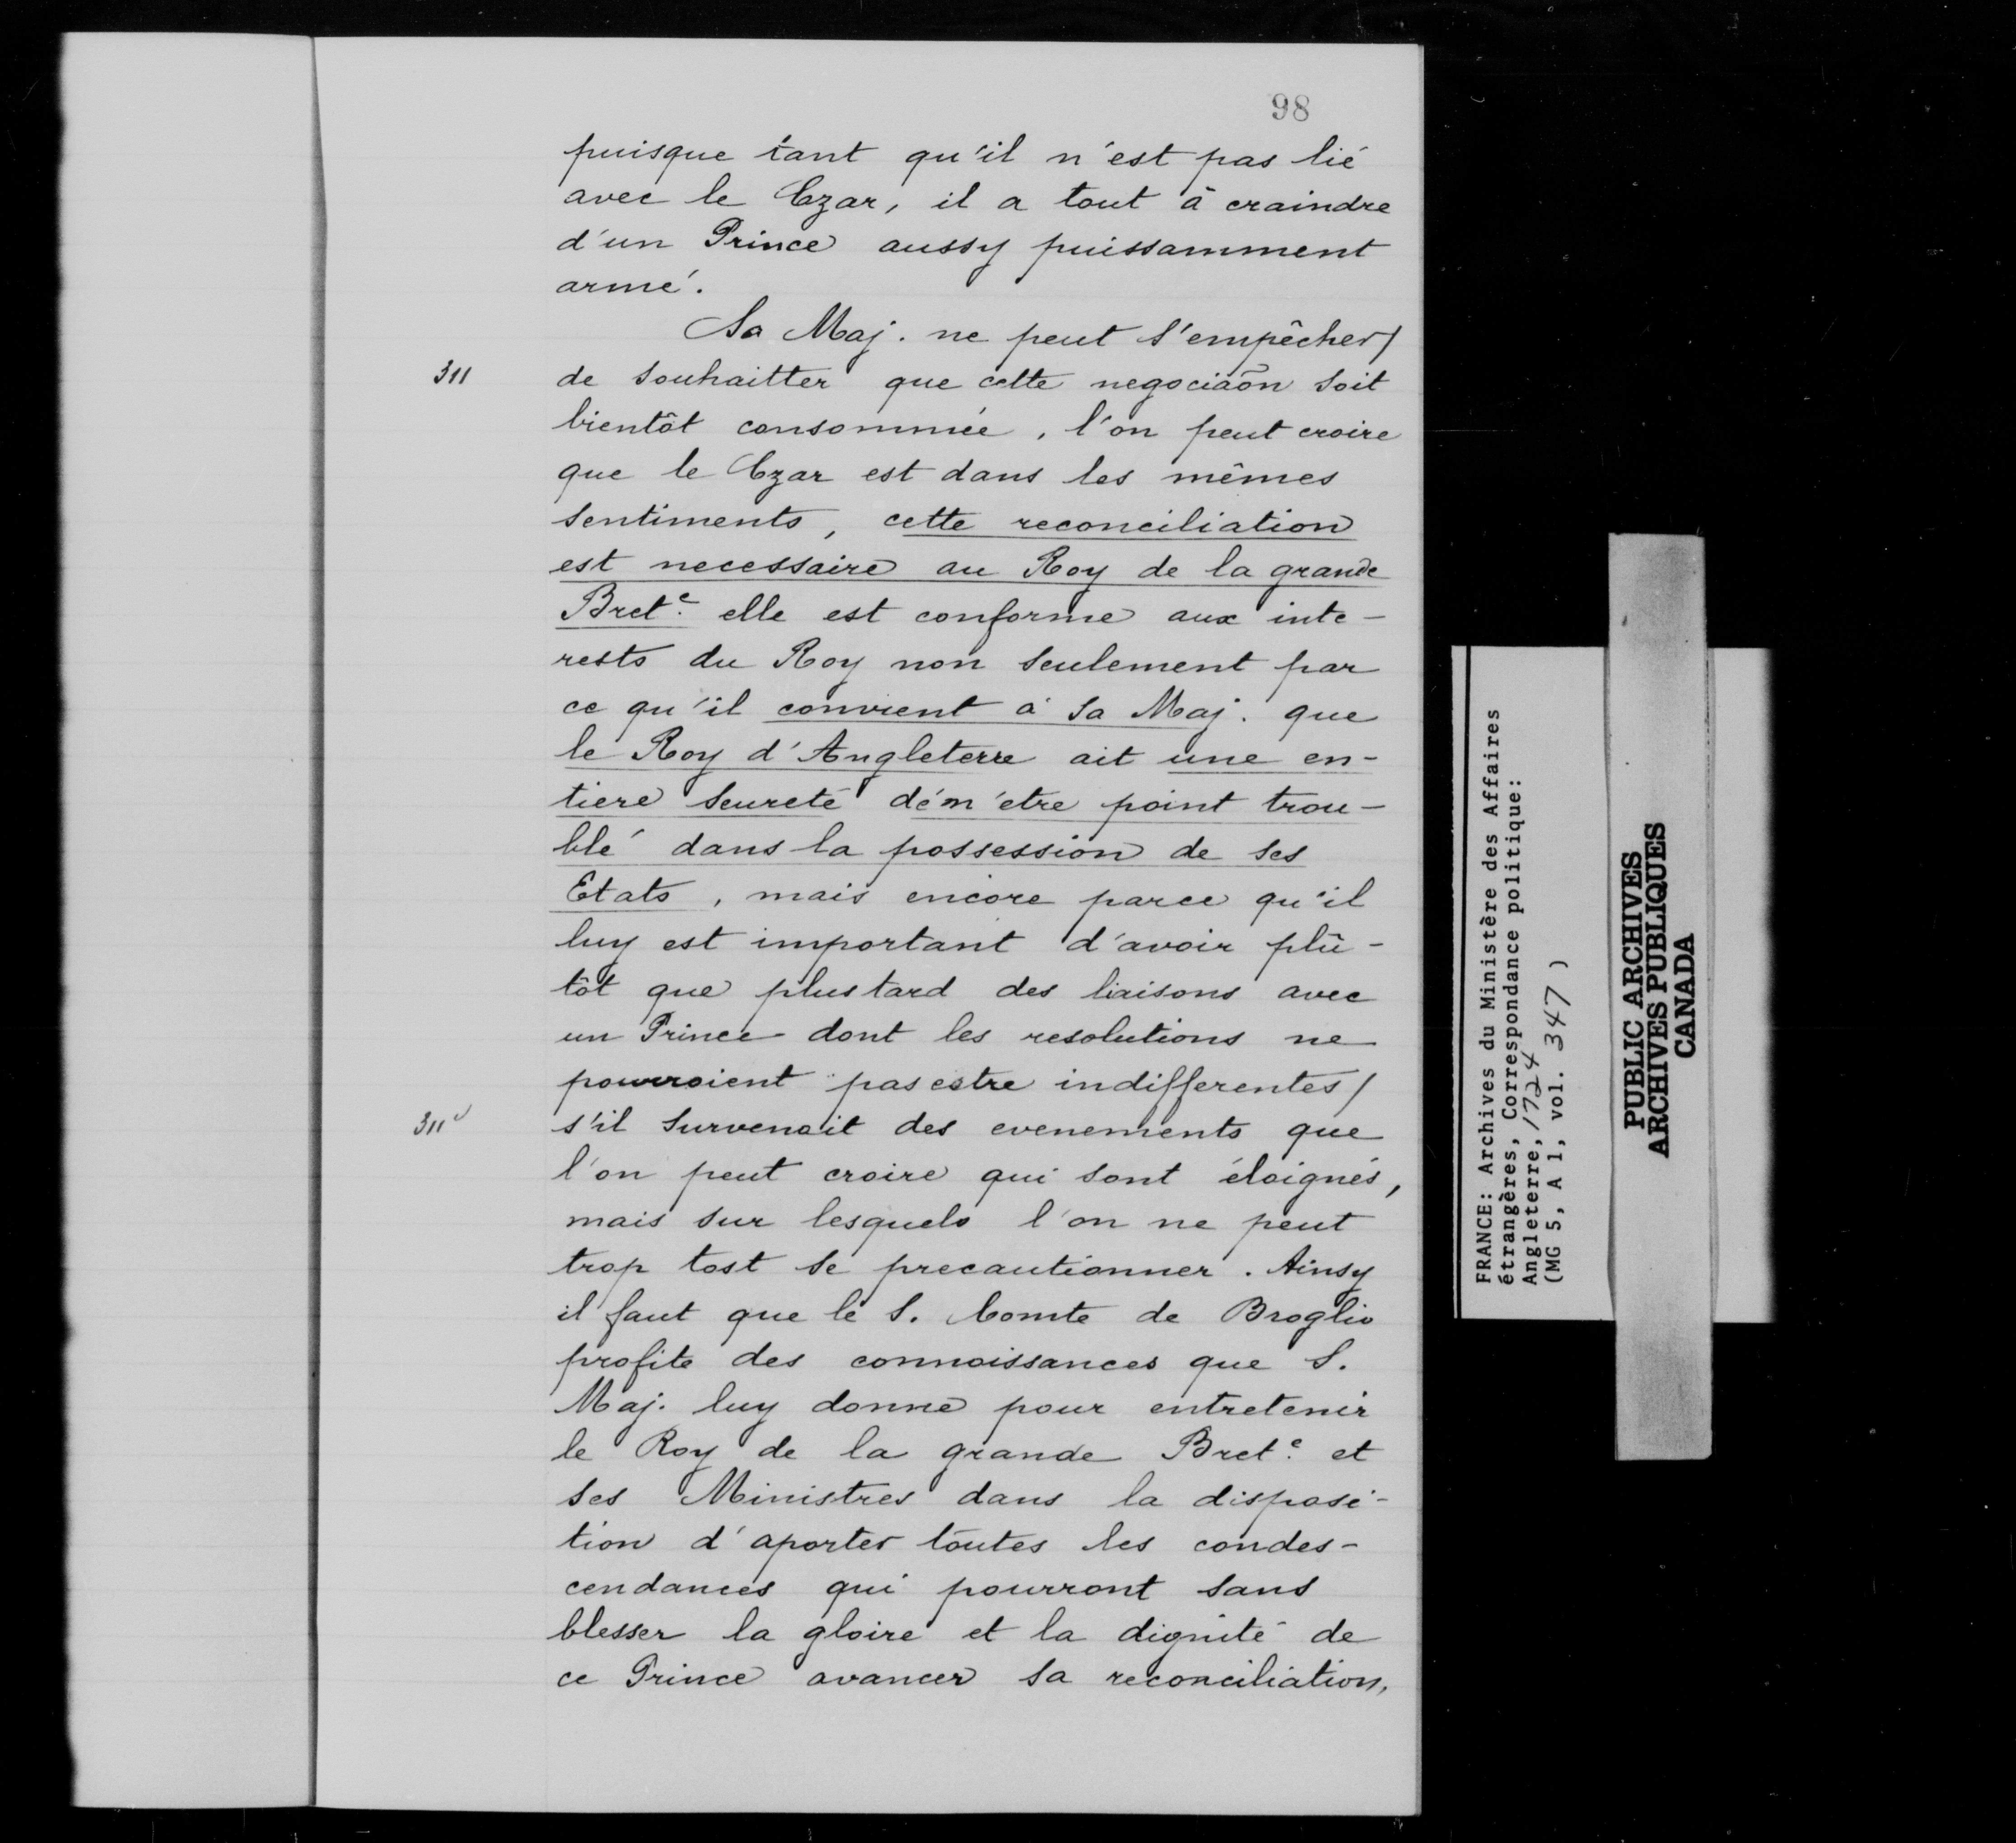 98
puisque tant qu'il n'est pas lié
avec le Czar, il a tout à craindre
d'un Prince aussy puissamment
armé.
Sa Maj. ne peut s'empêcher/
311 de souhaitter que cette negociaõn soit
bientôt consommée, l'on peut croire
que le Czar est dans les mêmes
sentiments, cette reconciliation
est necessaire au Roy de la grande
Bret.e elle est conforme aux inte-
rests du Roy non seulement par
ce qu'il convient à Sa Maj. que
le Roy d'Angleterre ait une en-
tiere seureté dé n'etre point trou-
blé dans la possession de ses
Etats, mais encore parce qu'il
luy est important d'avoir plû-
tôt que plustard des liaisons avec
un Prince dont les resolutions ne
pourroient pas estre indifferentes/
311v s'il survenait des evenements que
l'on peut croire qui sont éloignés,
mais sur lesquels l'on ne peut
trop tost se precautionner. Ainsy
il faut que le S. Comte de Broglio
profite des connoissances que S.
Maj. luy donne pour entretenir
le Roy de la grande Bret.e et
ses Ministres dans la disposi-
tion d'aporter toutes les condes-
cendances qui pourront sans
blesser la gloire et la dignité de
ce Prince avancer sa reconciliation,
FRANCE: Archives du Ministère des Affaires
étrangères, Correspondance politique:
Angleterre, 1724
(MG 5, A 1, vol. 347 )
PUBLIC ARCHIVES
ARCHIVES PUBLIQUES
CANADA